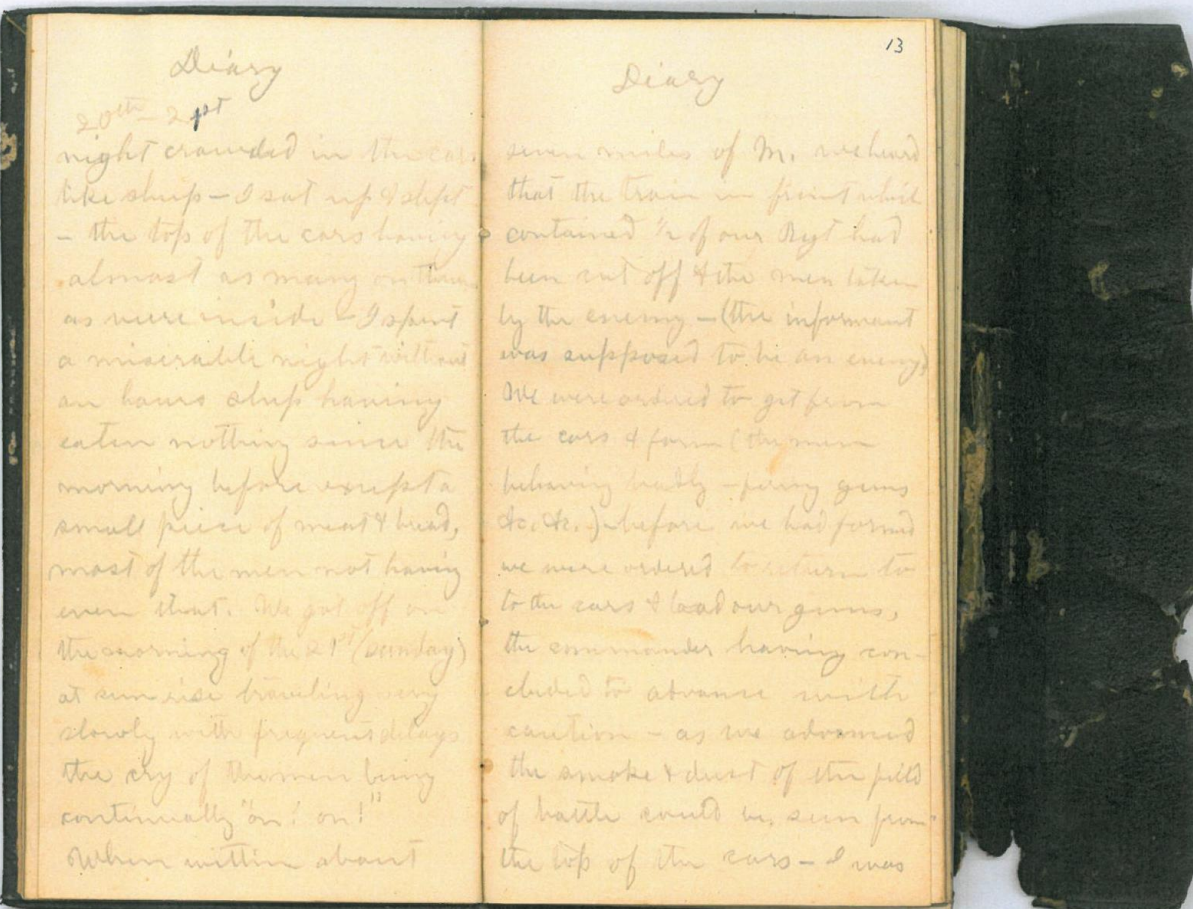 Diary
20th - 21st
night crowded in the cars
like sheep - I sat up & slept
- the top of the cars having
almost as many on them
as were inside - I spent
a miserable night without
an hours sleep having
eaten nothing since the
morning before except a
small piece of meat & bread,
most of the men not having
even that. We got off on
the morning of the 21st (Sunday)
at sun rise traveling very
slowly with frequent delays
the cry of the men being
continually "on! on!"
When within about
13
Diary
seven miles of M. we heard
that the train in front which
contained 1/2 of our Regt had
been cut off & the men taken
by the enemy - (the informant
was supposed to be an enemy)
We were ordered to get from
the cars & form (the men
behaving badly - firing guns
&c. &c.) before we had formed
we were ordered to return to
to the cars & load our guns,
the commander having con-
cluded to advance with
caution - as we advanced
the smoke & dust of the field
of battle could be seen from
the top of the cars - I was